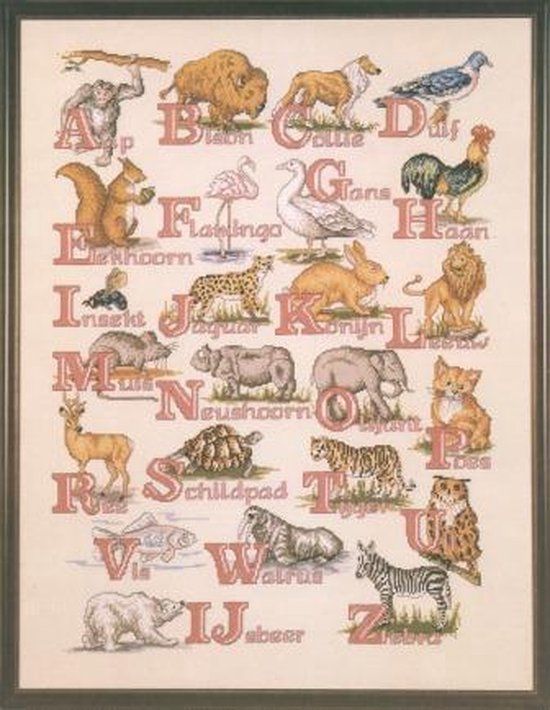 Aap Bison Collie Duif
Eekhoorn Flamingo Gans Haan
Insekt Jaguar Konijn Leeuw
Muis Neushoorn Olifant Poes
Ree Schildpad Tijger Uil
Vis Walrus
IJsbeer Zebra